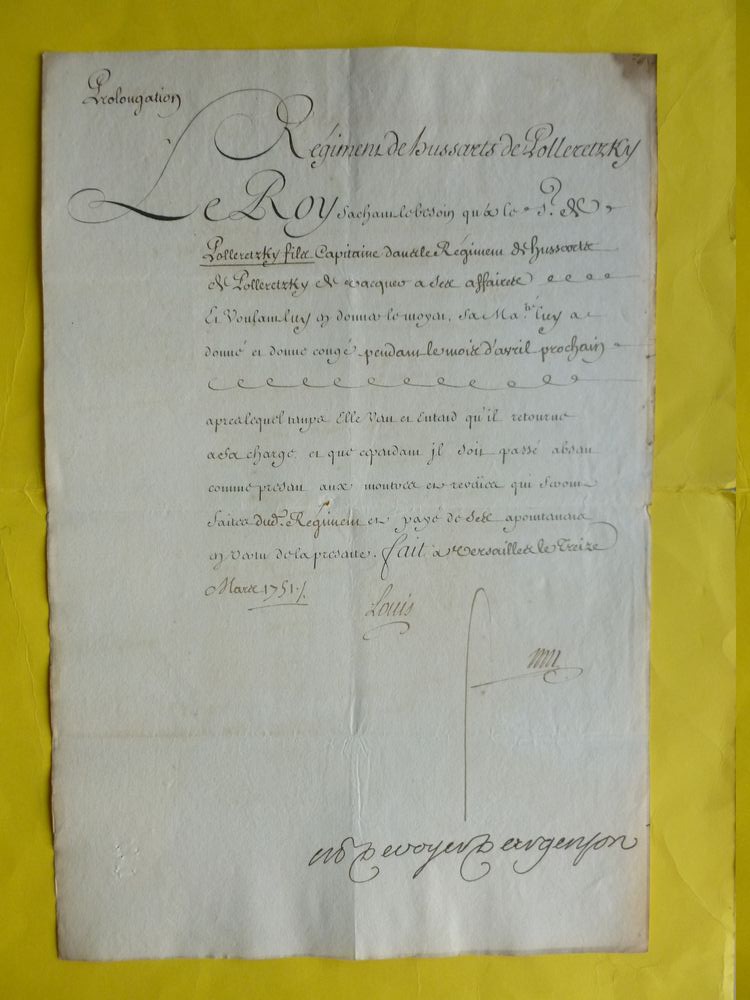 Prolongation
Régiment de hussarts de Polleretzky
Le Roy sachant le besoin qu'a le Sr. de
Polleretzky fils Capitaine dans le Régiment de hussarts
de Polleretzky de vacquer a ses affaires
Et Voulant luy en donner le moyen, Sa Ma.té luy a
donné et donne congé pendant le mois d'avril prochain
apres lequel temps Elle Veut et Entend qu'il retourne
a sa charge, et que cependant jl soit passé absent
comme present aux montres et reveües qui seront
faites dud. Régiment et payé de ses apointements
en vertu de la presente. fait à Versailles le Treize
Mars 1751./.
Louis
M de voyer d'argenson